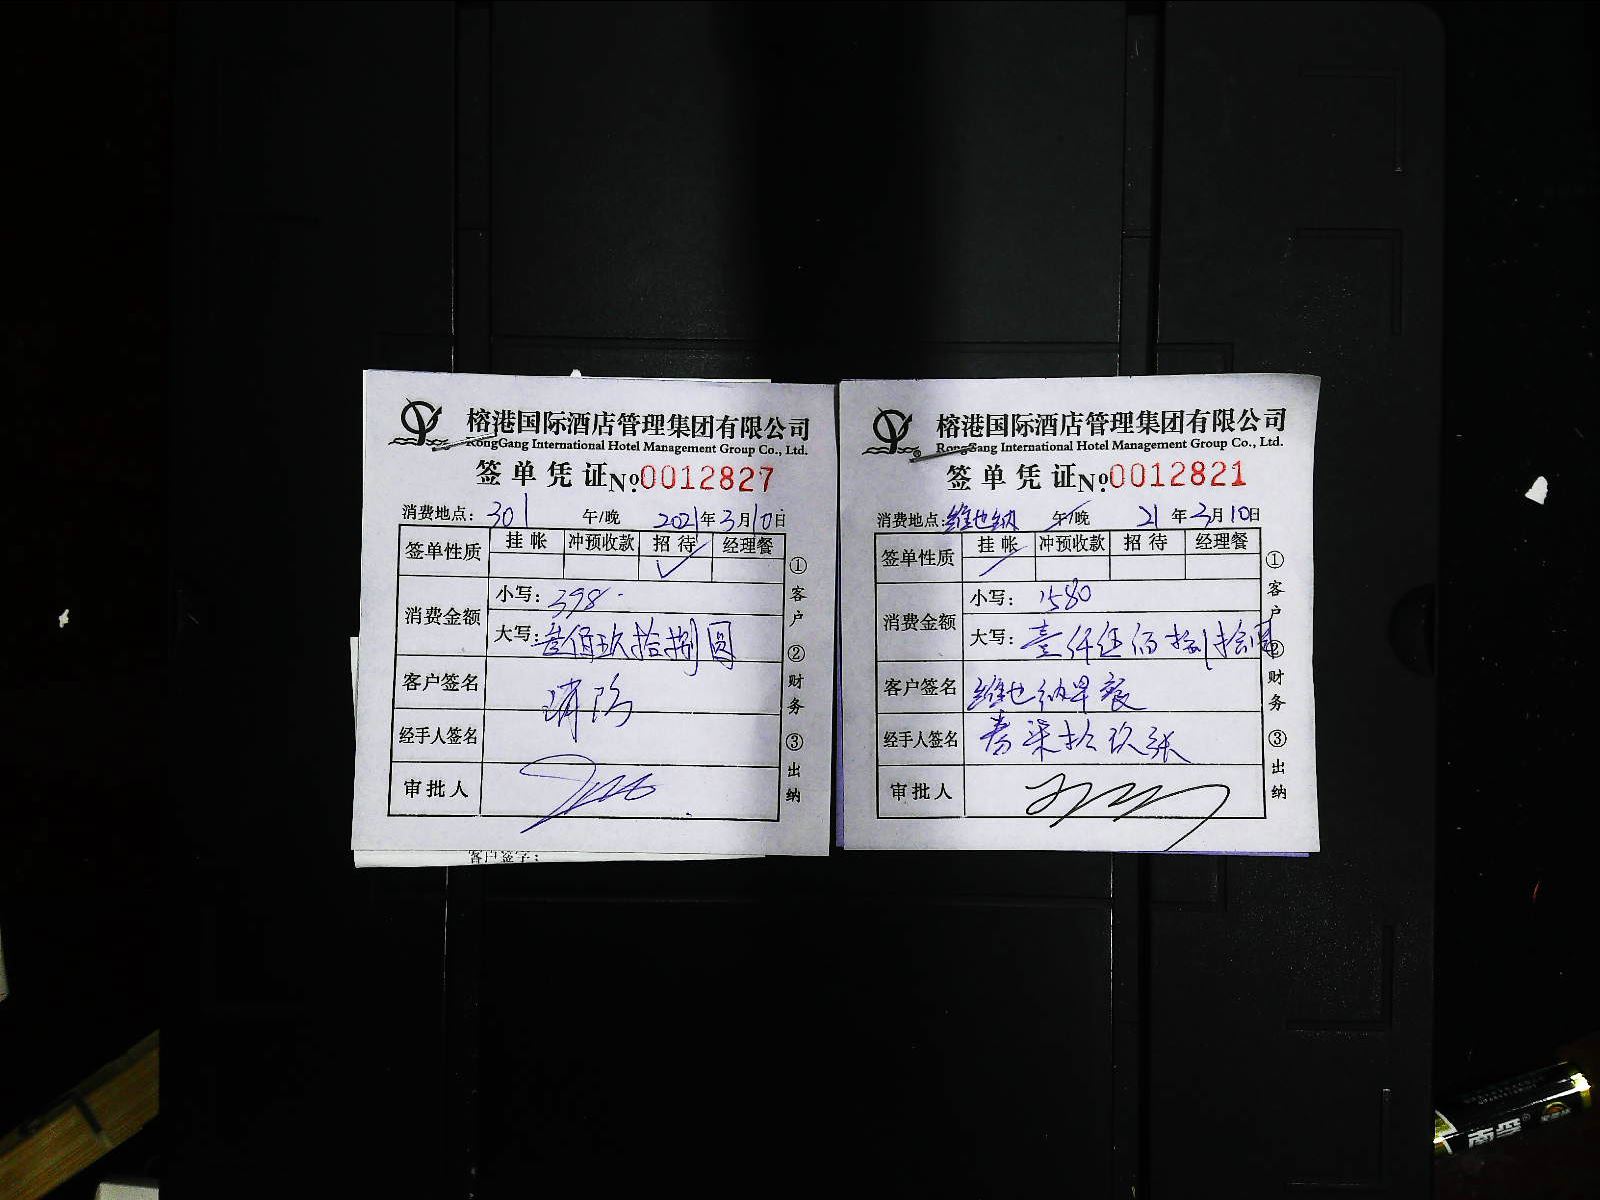 榕港国际酒店管理集团有限公司
RongGang International Hotel Management Group Co., Ltd.
签单凭证 No.0012827
消费地点: 301 午/晚 2021年3月10日
签单性质 挂帐 冲预收款 招待 经理餐
消费金额 小写: 398
大写: 叁佰玖拾捌圆
客户签名 消防
经手人签名
审批人
①客户 ②财务 ③出纳
客户签字:
榕港国际酒店管理集团有限公司
RongGang International Hotel Management Group Co., Ltd.
签单凭证 No.0012821
消费地点: 维也纳 午/晚 21年3月10日
签单性质 挂帐 冲预收款 招待 经理餐
消费金额 小写: 1580
大写: 壹仟伍佰捌拾圆
客户签名 维也纳早餐
经手人签名 券柒拾玖张
审批人
①客户 ②财务 ③出纳
南孚